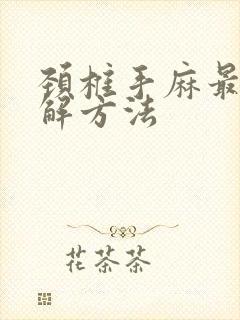 颈椎手麻最
解方法
花茶茶